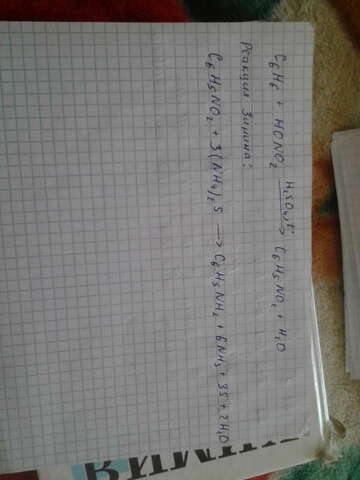 C₆H₆ + HONO₂ $\xrightarrow{H_2SO_4, t°}$ C₆H₅NO₂ + H₂O
Реакция Зинина:
C₆H₅NO₂ + 3(NH₄)₂S → C₆H₅NH₂ + 6NH₃ + 3S + 2H₂O